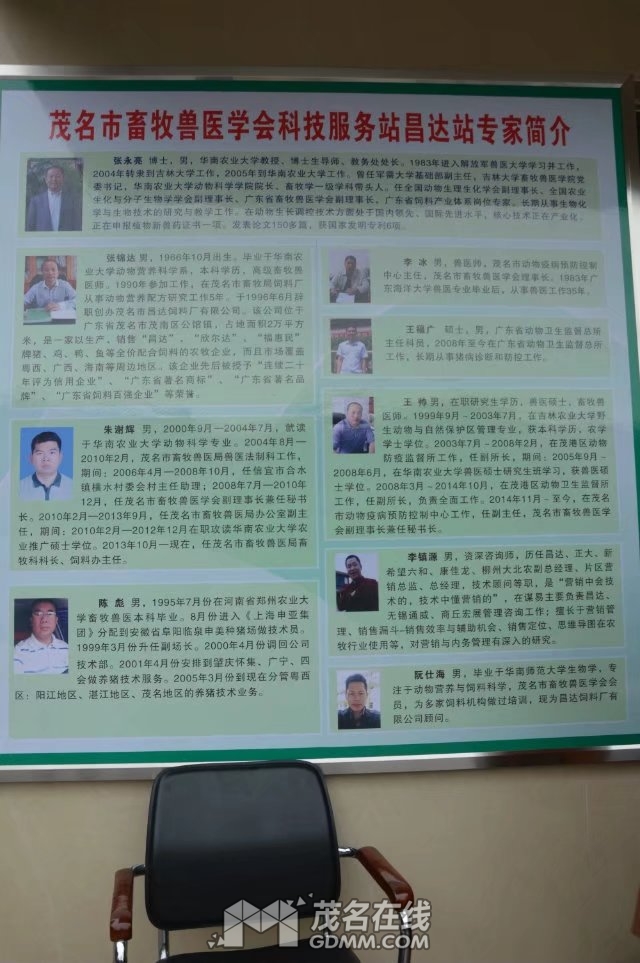 茂名市畜牧兽医学会科技服务站昌达站专家简介
张永亮 博士，男，华南农业大学教授、博士生导师、教务处处长。1983年进入解放军兽医大学学习并工作，
2004年转隶到吉林大学工作，2005年到华南农业大学工作。曾任军需大学基础部副主任，吉林大学畜牧兽医学院党
委书记，华南农业大学动物科学学院院长、畜牧学一级学科带头人。任全国动物生理生化学会副理事长、全国农业
生化与分子生物学学会副理事长、广东省畜牧兽医学会副理事长、广东省饲料产业体系岗位专家。长期从事生物化
学与生物技术的研究与教学工作。在动物生长调控技术方面处于国内领先、国际先进水平，核心技术正在产业化，
正在申报植物新兽药证书一项。发表论文150多篇，获国家发明专利6项。
张锦达 男，1966年10月出生。毕业于华南农
业大学动物营养科学系，本科学历，高级畜牧兽
医师。1990年参加工作，在茂名市畜牧局饲料厂
从事动物营养配方研究工作5年。于1996年6月辞
职创办茂名市昌达饲料厂有限公司。该公司位于
广东省茂名市茂南区公馆镇，占地面积2万平方
米，是一家以生产、销售“昌达”、“欣尔达”、“福惠民”
牌猪、鸡、鸭、鱼等全价配合饲料的农牧企业，而且市场覆盖
粤西、广西、海南等周边地区。该企业先后被授予“连续二十
年评为信用企业”、“广东省著名商标”、“广东省著名品
牌”、“广东省饲料百强企业”等荣誉。
朱谢辉 男，2000年9月—2004年7月，就读
于华南农业大学动物科学专业。2004年8月—
2010年2月，茂名市畜牧兽医局兽医法制科工作，
期间：2006年4月—2008年10月，任信宜市合水
镇横水村委会村主任助理；2008年7月—2010年
12月，任茂名市畜牧兽医学会副理事长兼任秘书
长。2010年2月—2013年9月，任茂名市畜牧兽医局办公室副主
任，期间：2010年2月—2012年12月在职攻读华南农业大学农
业推广硕士学位。2013年10月—现在，任茂名市畜牧兽医局畜
牧科科长、饲料办主任。
陈 彪 男，1995年7月份在河南省郑州农业大
学畜牧兽医本科毕业。8月份进入《上海申亚集
团》分配到安徽省阜阳临泉申美种猪场做技术员。
1999年3月份升任副场长。2000年4月份调回公司
技术部。2001年4月份安排到肇庆怀集、广宁、四
会做养猪技术服务。2005年3月份到现在分管粤西
区：阳江地区、湛江地区、茂名地区的养猪技术业务。
李 冰 男，兽医师，茂名市动物疫病预防控制
中心主任，茂名市畜牧兽医学会理事长。1983年
广东海洋大学兽医专业毕业后，从事兽医工作35年。
王福广 硕士，男，广东省动物卫生监督总所
主任科员，2008年至今在广东省动物卫生监督总所
工作，长期从事猪病诊断和防控工作。
王 帅 男，在职研究生学历，兽医硕士，畜牧兽
医师。1999年9月～2003年7月，在吉林农业大学野
生动物与自然保护区管理专业，获本科学历，农学
学士学位。2003年7月～2008年2月，在茂港区动物
防疫监督所工作，任副所长，期间：2005年9月～
2008年6月，在华南农业大学兽医硕士研究生班学习，获兽医硕
士学位。2008年3月～2014年10月，在茂港区动物卫生监督所
工作，任副所长，负责全面工作。2014年11月～至今，在茂名
市动物疫病预防控制中心工作，任副主任，茂名市畜牧兽医学
会副理事长兼任秘书长。
李镇源 男，资深咨询师，历任昌达、正大、新
希望六和、康佳龙、柳州大北农副总经理、片区营
销总监、总经理，技术顾问等职，是“营销中会技
术的，技术中懂营销的”，在谋易主要负责昌达、
无锡通威、商丘宏展管理咨询工作；擅长于营销管
理、销售漏斗-销售效率与辅助机会、销售定位、思维导图在农
牧行业使用等，对营销与内务管理有深入的研究。
阮仕海 男，毕业于华南师范大学生物学，专
注于动物营养与饲料科学，茂名市畜牧兽医学会会
员，为多家饲料机构做过培训，现为昌达饲料厂有
限公司顾问。
茂名在线
GDMM.COM